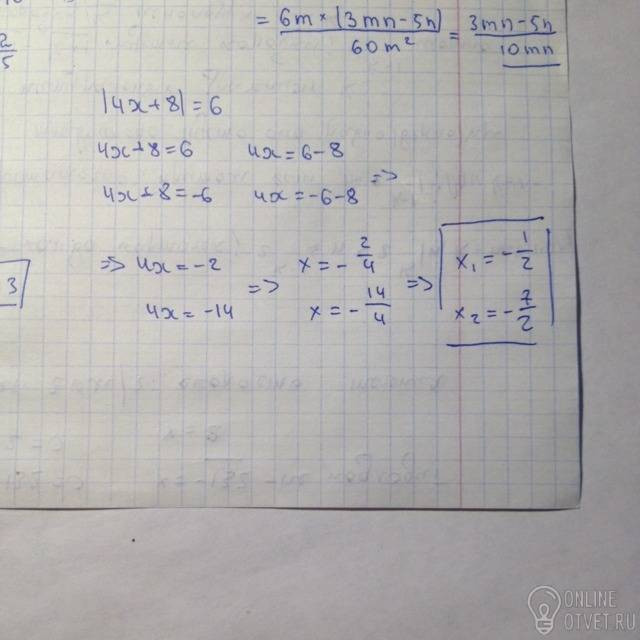 = 6m × (3mn-5n) / 60m² = 3mn-5n / 10mn
2/5
|4x+8|=6
4x+8=6 4x=6-8
4x+8=-6 4x=-6-8 =>
=> 4x=-2 => x=-2/4 => x₁=-1/2
3
4x=-14 x=-14/4 x₂=-7/2
ONLINE
OTVET.RU